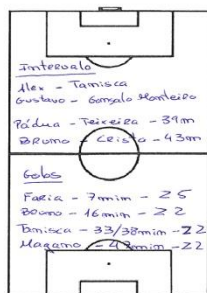 Intervalo
Alex - Tamisca
Gustavo - Gonsalo Monteiro
Pádua - Teixeira - 39m
Bruno - Crista - 43m
Golos
Faria - 7mim - Z5
Bruno - 16mim - Z2
Tamisca - 33/38mim - Z2
Magano - 43mim - Z2